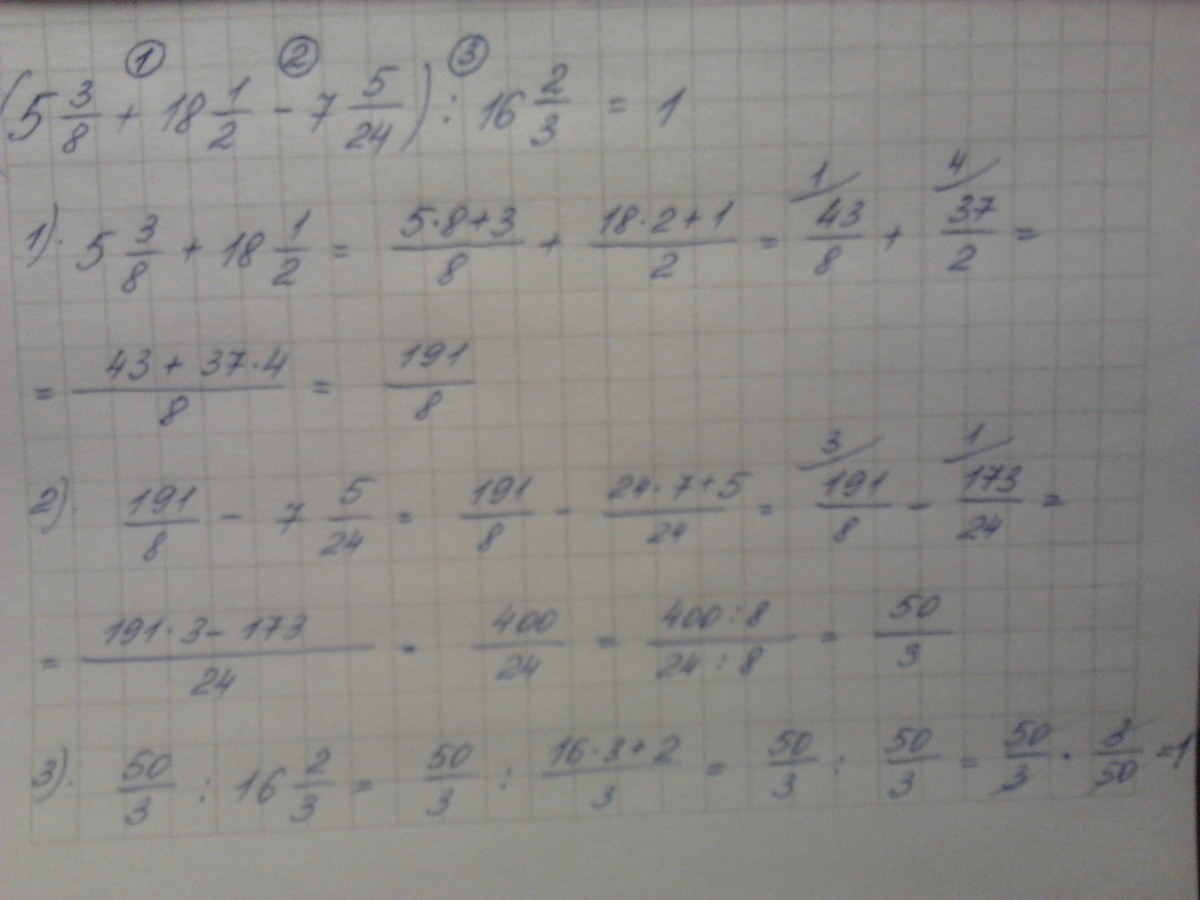 ① ② ③
(5 3/8 + 18 1/2 - 7 5/24) : 16 2/3 = 1
1). 5 3/8 + 18 1/2 = (5·8+3)/8 + (18·2+1)/2 = 1/ 43/8 + 4/ 37/2 =
= (43 + 37·4)/8 = 191/8
2). 191/8 - 7 5/24 = 191/8 - (24·7+5)/24 = 3/ 191/8 - 1/ 173/24 =
= (191·3-173)/24 = 400/24 = (400:8)/(24:8) = 50/3
3). 50/3 : 16 2/3 = 50/3 : (16·3+2)/3 = 50/3 : 50/3 = 50/3 · 3/50 =1